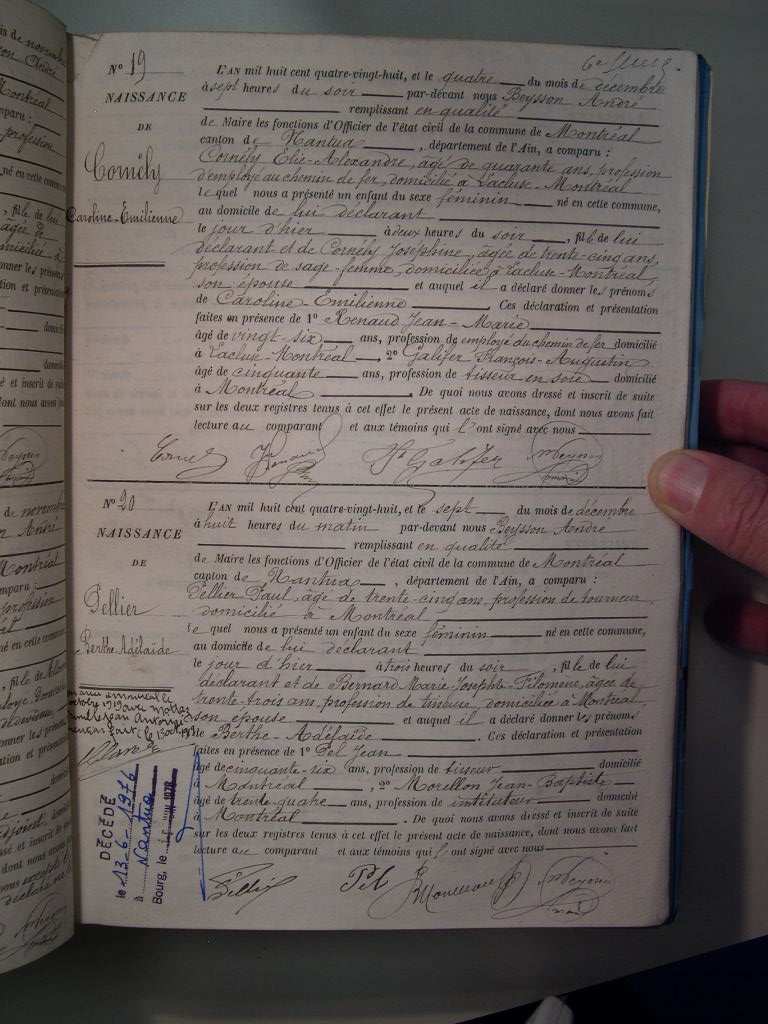 6e
N° 19
NAISSANCE
DE
Cornély
Caroline-Emilienne
L'AN mil huit cent quatre-vingt-huit, et le quatre du mois de décembre
à sept heures du soir par-devant nous Beysson André
remplissant en qualité
de Maire les fonctions d'Officier de l'état civil de la commune de Montréal
canton de Nantua, département de l'Ain, a comparu :
Cornély Elie-Alexandre, âgé de quarante ans, profession
d'employé au chemin de fer, domicilié à Lacluse-Montréal
lequel nous a présenté un enfant du sexe féminin né en cette commune,
au domicile de lui déclarant
le jour d'hier à deux heures du soir, fille de lui
déclarant et de Cornély Joséphine, âgée de trente-cinq ans,
profession de sage-femme, domiciliée à Lacluse-Montréal,
son épouse et auquel il a déclaré donner les prénoms
de Caroline-Emilienne. Ces déclaration et présentation
faites en présence de 1° Renaud Jean-Marie
âgé de vingt-six ans, profession de employé du chemin de fer domicilié
à Lacluse-Montréal, 2° Galifer François-Augustin
âgé de cinquante ans, profession de tisseur en soie domicilié
à Montréal. De quoi nous avons dressé et inscrit de suite
sur les deux registres tenus à cet effet le présent acte de naissance, dont nous avons fait
lecture au comparant et aux témoins qui l'ont signé avec nous
N° 20
NAISSANCE
DE
Pellier
Berthe Adélaïde
L'AN mil huit cent quatre-vingt-huit, et le sept du mois de décembre
à huit heures du matin par-devant nous Beysson André
remplissant en qualité
de Maire les fonctions d'Officier de l'état civil de la commune de Montréal
canton de Nantua, département de l'Ain, a comparu :
Pellier Paul, âgé de trente-cinq ans, profession de tourneur,
domicilié à Montréal
lequel nous a présenté un enfant du sexe féminin né en cette commune,
au domicile de lui déclarant
le jour d'hier à trois heures du soir, fille de lui
déclarant et de Bernard Marie-Josephte-Filomène, âgée de
trente-trois ans, profession de tisseuse, domiciliée à Montréal,
son épouse et auquel il a déclaré donner les prénoms
de Berthe-Adélaïde. Ces déclaration et présentation
faites en présence de 1° Pel Jean
âgé de cinquante-six ans, profession de tisseur domicilié
à Montréal, 2° Morellon Jean-Baptiste
âgé de trente-quatre ans, profession de instituteur domicilié
à Montréal. De quoi nous avons dressé et inscrit de suite
sur les deux registres tenus à cet effet le présent acte de naissance, dont nous avons fait
lecture au comparant et aux témoins qui l'ont signé avec nous
Pellier Pel
DÉCÉDÉ
le 13-6-1976
à Nantua
Bourg, le